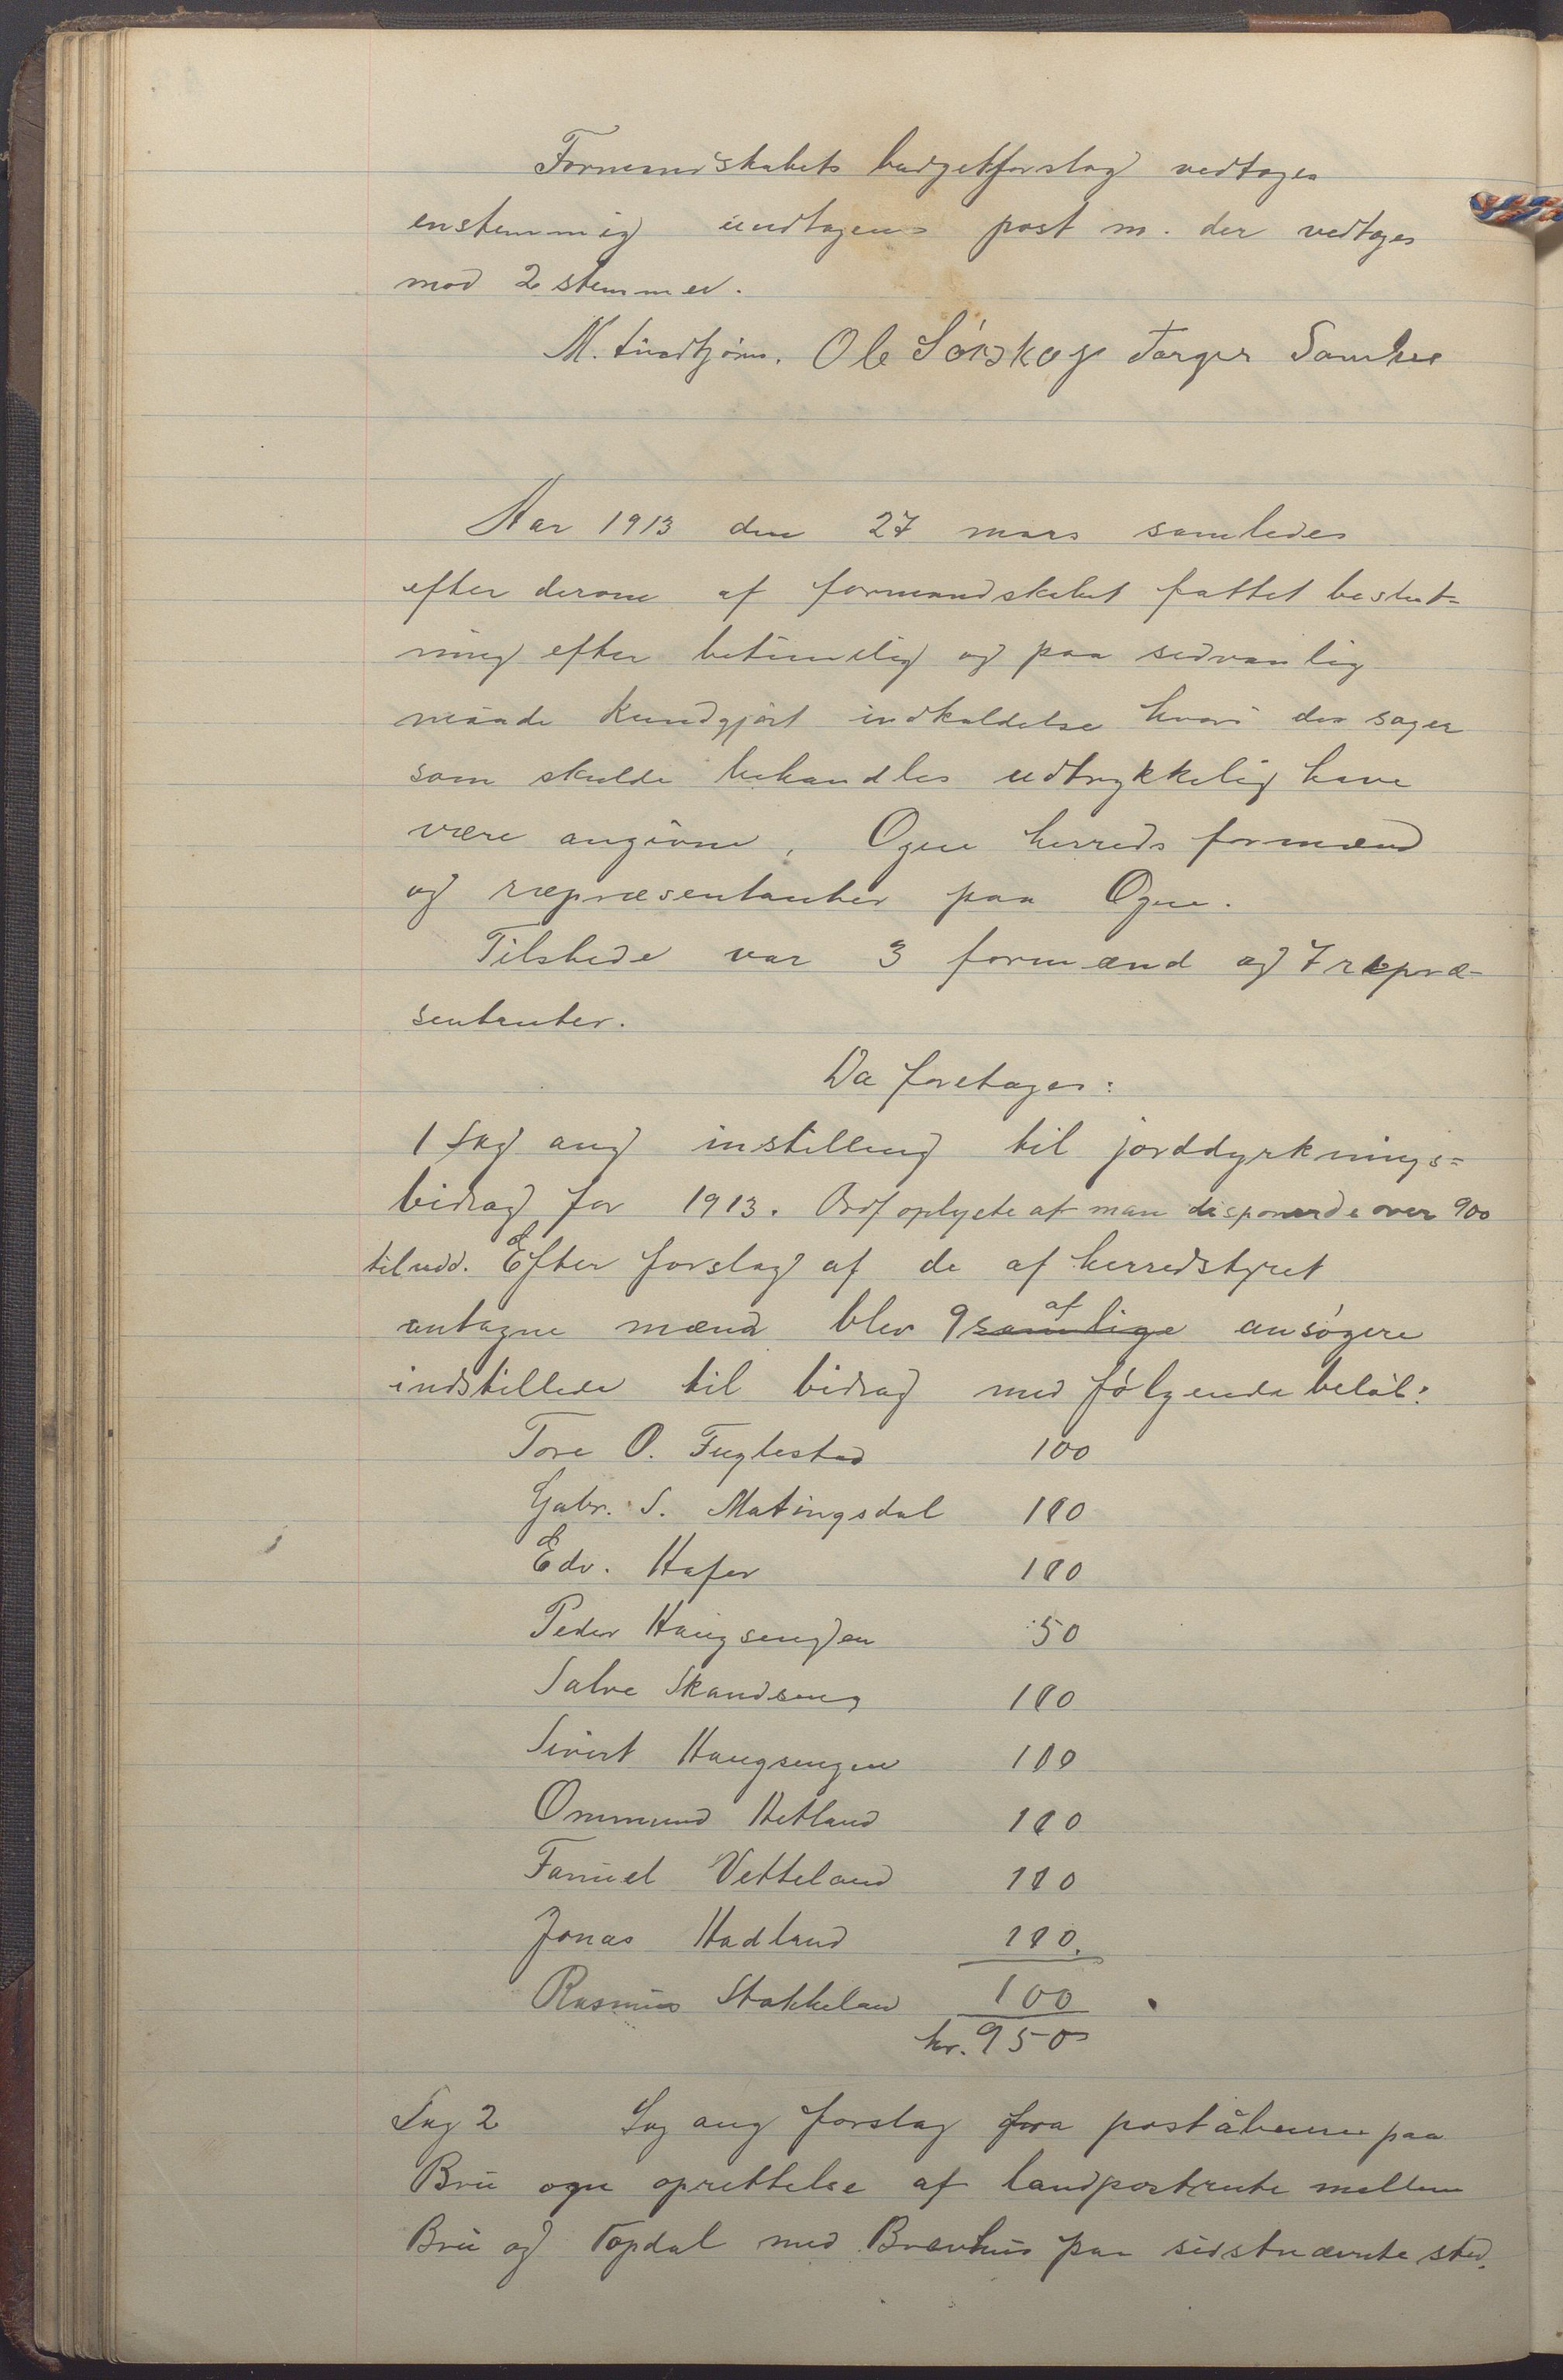 Formandskabets budgetforslag vedtages
enstemmig undtagens post m. der vedtages
mod 2 stemmer.
M. Lindtjørn. Ole Sirskog Torger
Aar 1913 den 27 mars samledes
efter derom af formandskabet fattet beslut=
ning efter betimelig og paa sedvanlig
maade kundgjørt indkaldelse hvori de sager
som skulde behandles udtrykkelig have
være angivne, Ogne herreds formænd
og ræpræsentanter paa Ogne.
Tilstede var 3 formænd og 7 repræ-
sentanter.
Da foretages:
1 Sag ang instilling til jorddyrknings=
bidrag for 1913. Ordf oplyste at man disponerde over 900
til udd. Efter forslag af de af herredstyret
antagne mænd blev 9 samtlige af ansøgere
indstillede til bidrag med følgende beløb:
Tore O. Fuglestad 100
Gabr. S. Matingsdal 100
Edv. Hafer 100
Peder Haugsengen 50
Salve Skandseng 100
Sivert Haugsengen 100
Ommund Hetland 100
Fanuel Vetteland 100
Jonas Hadland 100.
Rasmus Stokkelan 100
kr. 950
Sag 2 Sag ang forslag fra poståbneren paa
Bru ogn oprettelse af landpostrute mellem
Bru og Topdal med Brævhus paa sidstnævnte sted.